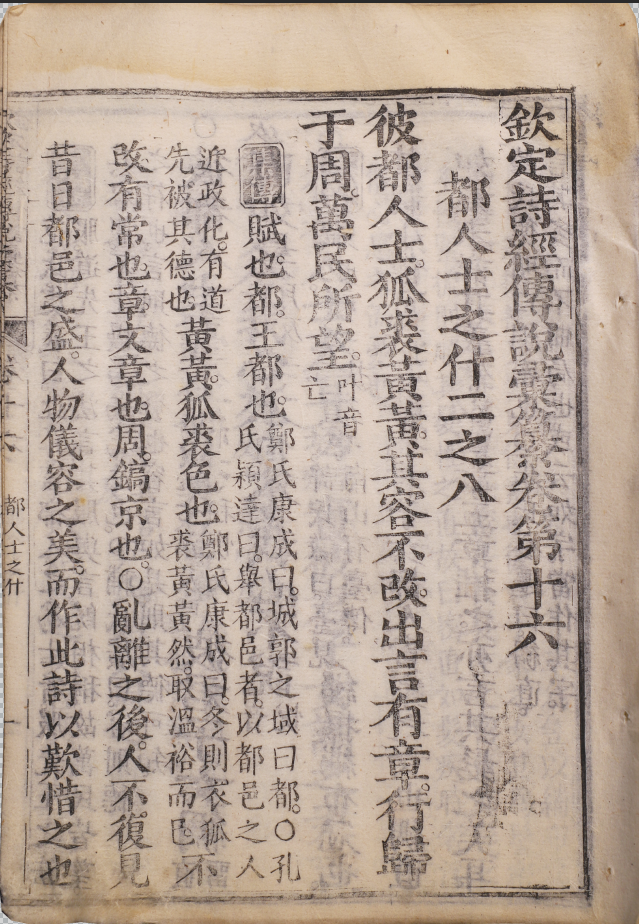 欽定詩經傳說彙纂卷第十六
都人士之什二之八
彼都人士。狐裘黃黃。其容不改。出言有章。行歸
于周。萬民所望。叶音亡
集傳賦也。都。王都也。鄭氏康成曰。城郭之域曰都。○孔氏穎達曰。舉都邑者。以都邑之人
近政化。有道先被其德也黃黃。狐裘色也。鄭氏康成曰。冬則衣狐裘黃黃然。取溫裕而已。不
改有常也。章文章也。周。鎬京也。○亂離之後。人不復見
昔日都邑之盛。人物儀容之美。而作此詩以歎惜之也
卷十六
都人士之什
一